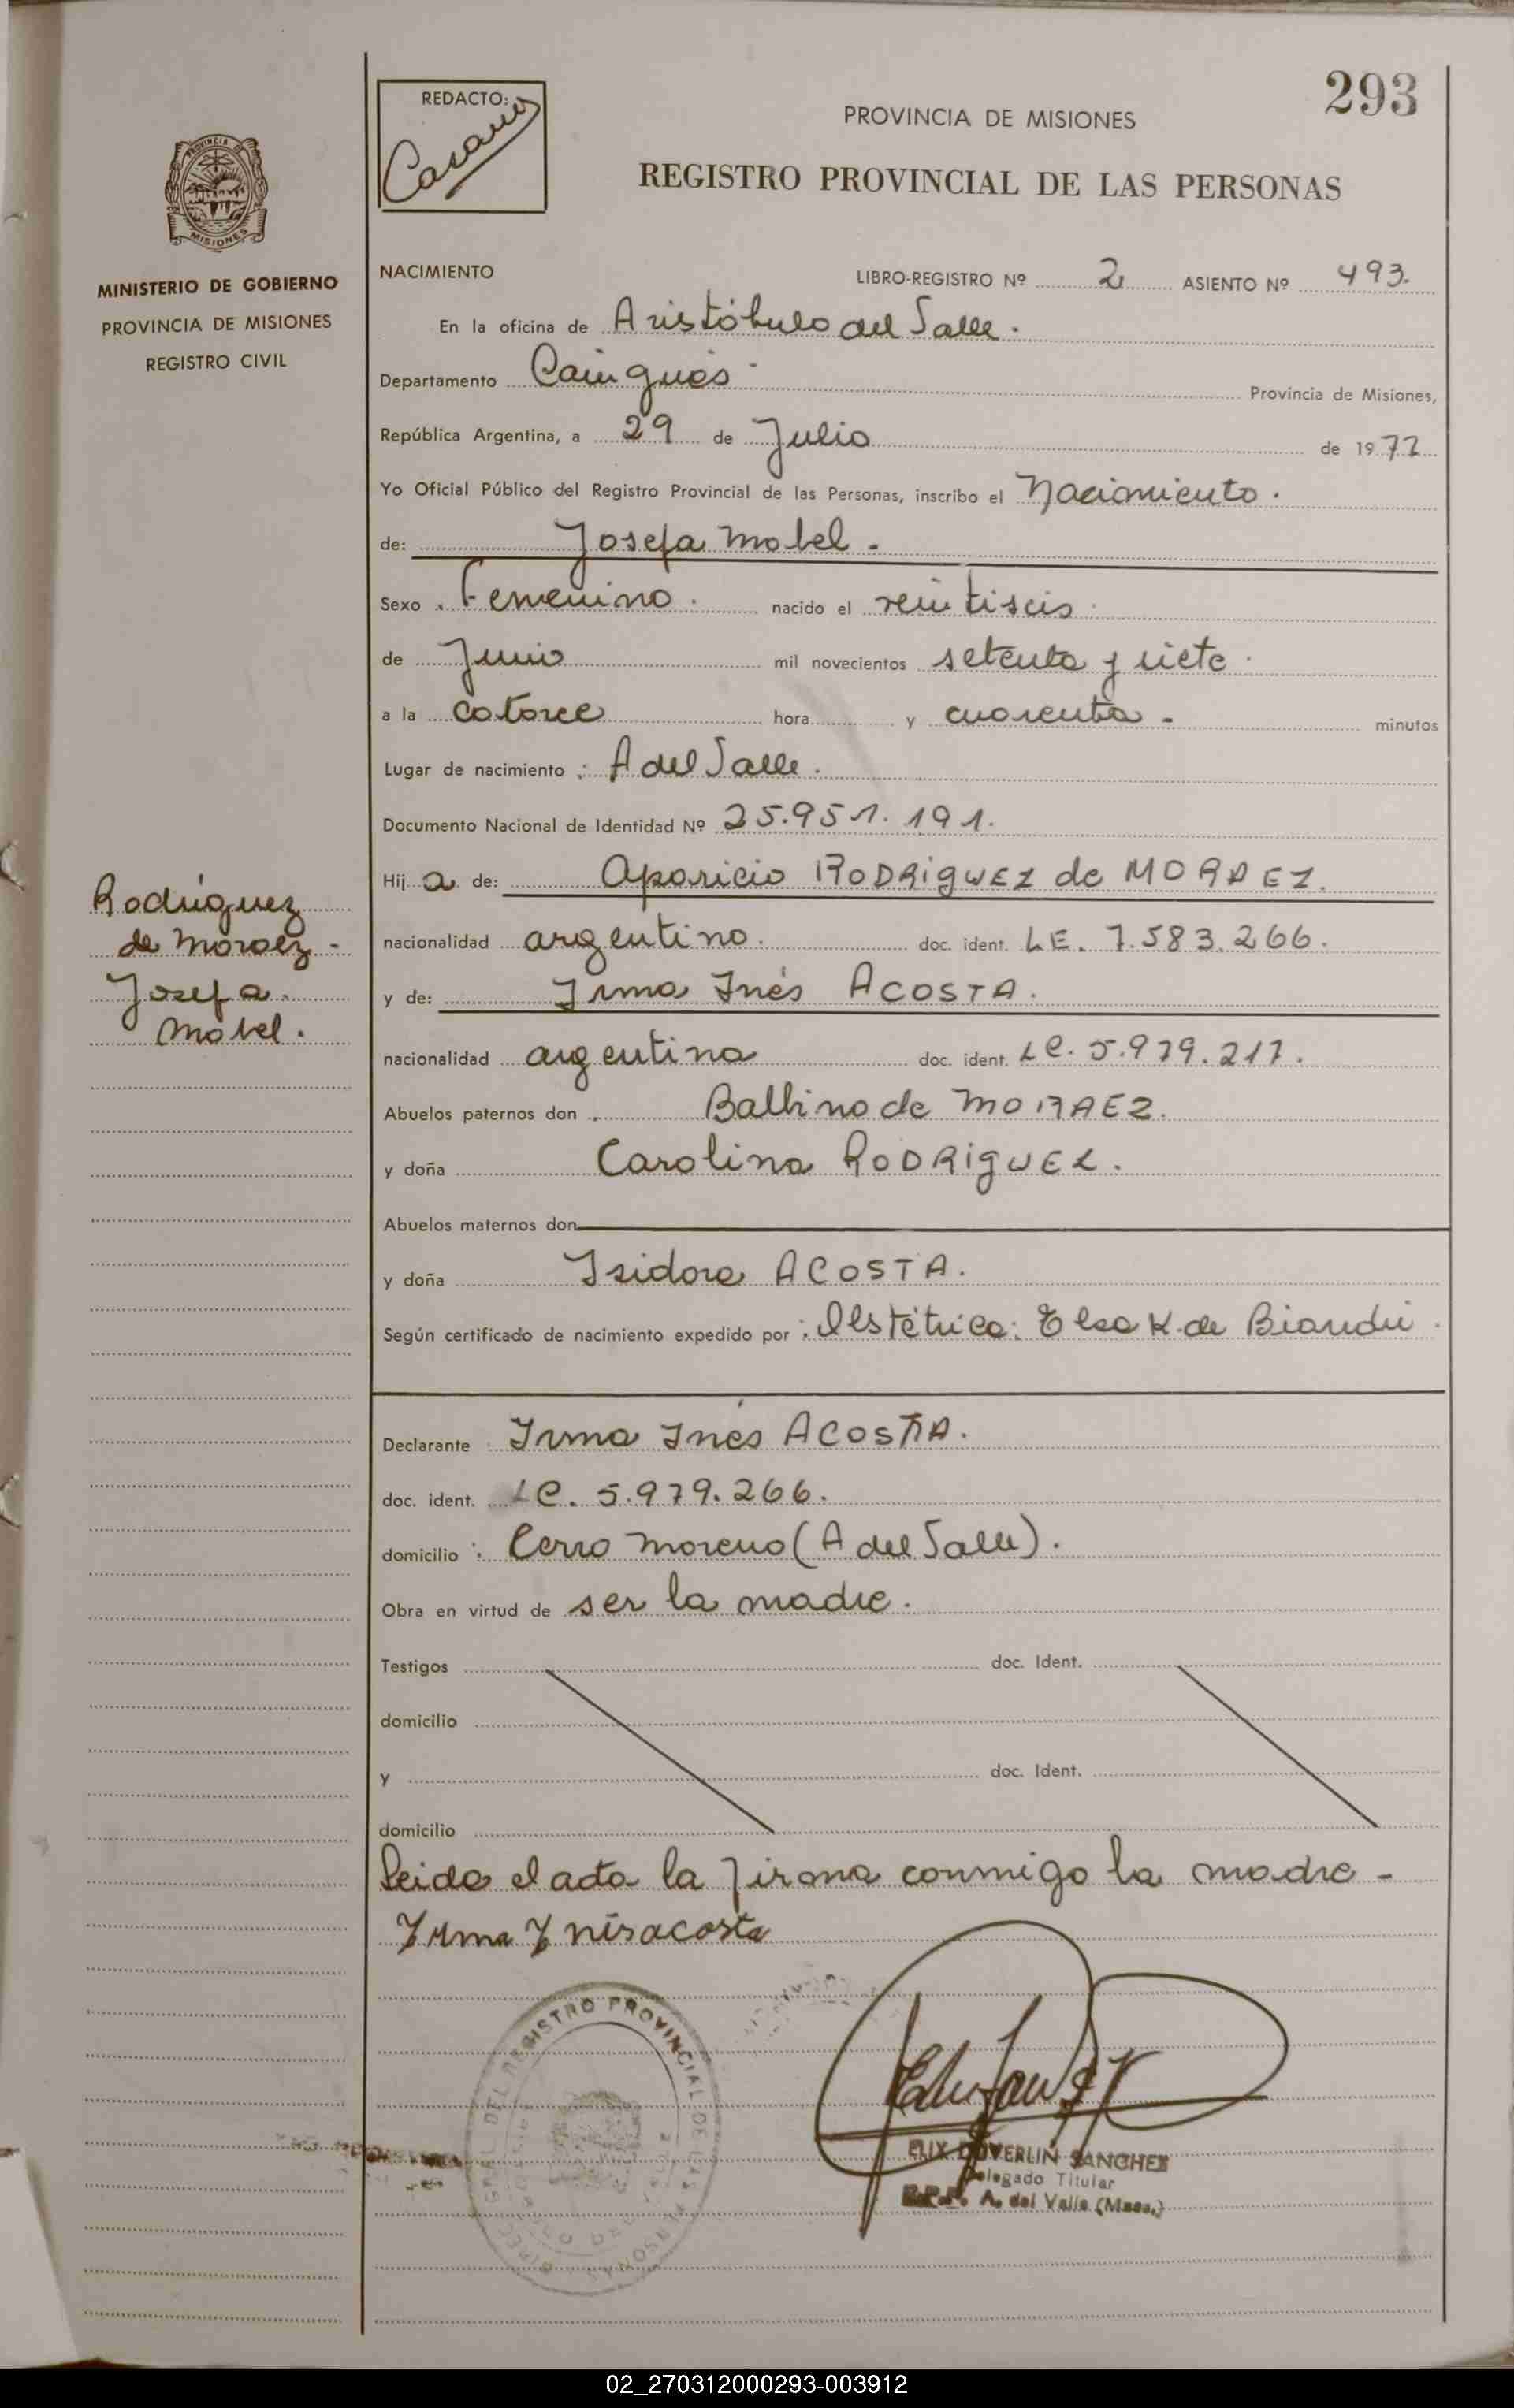 293
REDACTO:
PROVINCIA DE MISIONES
REGISTRO PROVINCIAL DE LAS PERSONAS
PROVINCIA
MISIONES
MINISTERIO DE GOBIERNO
PROVINCIA DE MISIONES
REGISTRO CIVIL
NACIMIENTO
LIBRO-REGISTRO Nº 2 ASIENTO Nº 493.
En la oficina de Aristóbulo del Valle.
Departamento Cainguás Provincia de Misiones,
República Argentina, a 29 de Julio de 1977
Yo Oficial Público del Registro Provincial de las Personas, inscribo el Nacimiento.
de: Josefa Mabel.
Sexo Femenino. nacido el veintiseis
de Junio mil novecientos setenta y siete.
a la catorce hora y cuarenta - minutos
Lugar de nacimiento: A del Valle.
Documento Nacional de Identidad Nº 25.951.191.
Hij a de: Aparicio RODRIGUEZ de MORAEZ.
nacionalidad argentino. doc. ident. LE. 7.583.266.
y de: Irma Inés ACOSTA.
nacionalidad argentina doc. ident. LC. 5.979.217.
Abuelos paternos don Balbino de MORAEZ.
y doña Carolina RODRIGUEZ.
Abuelos maternos don
y doña Isidora ACOSTA.
Según certificado de nacimiento expedido por: Obstétrica: Elsa K. de
Rodríguez
de Moraez -
Josefa
Mabel.
Declarante Irma Inés ACOSTA.
doc. ident. LC. 5.979.266.
domicilio: Cerro Moreno (A del Valle).
Obra en virtud de ser la madre.
Testigos doc. Ident.
domicilio
y doc. Ident.
domicilio
Leida el acta la firma conmigo la madre -
Yrma Ynésacosta
DEL REGISTRO PROVINCIAL DE LAS PERSONAS
DOVERLIN SANCHEZ
Delegado Titular
R.P.P. A. del Valle (Mnes.)
02_270312000293-003912